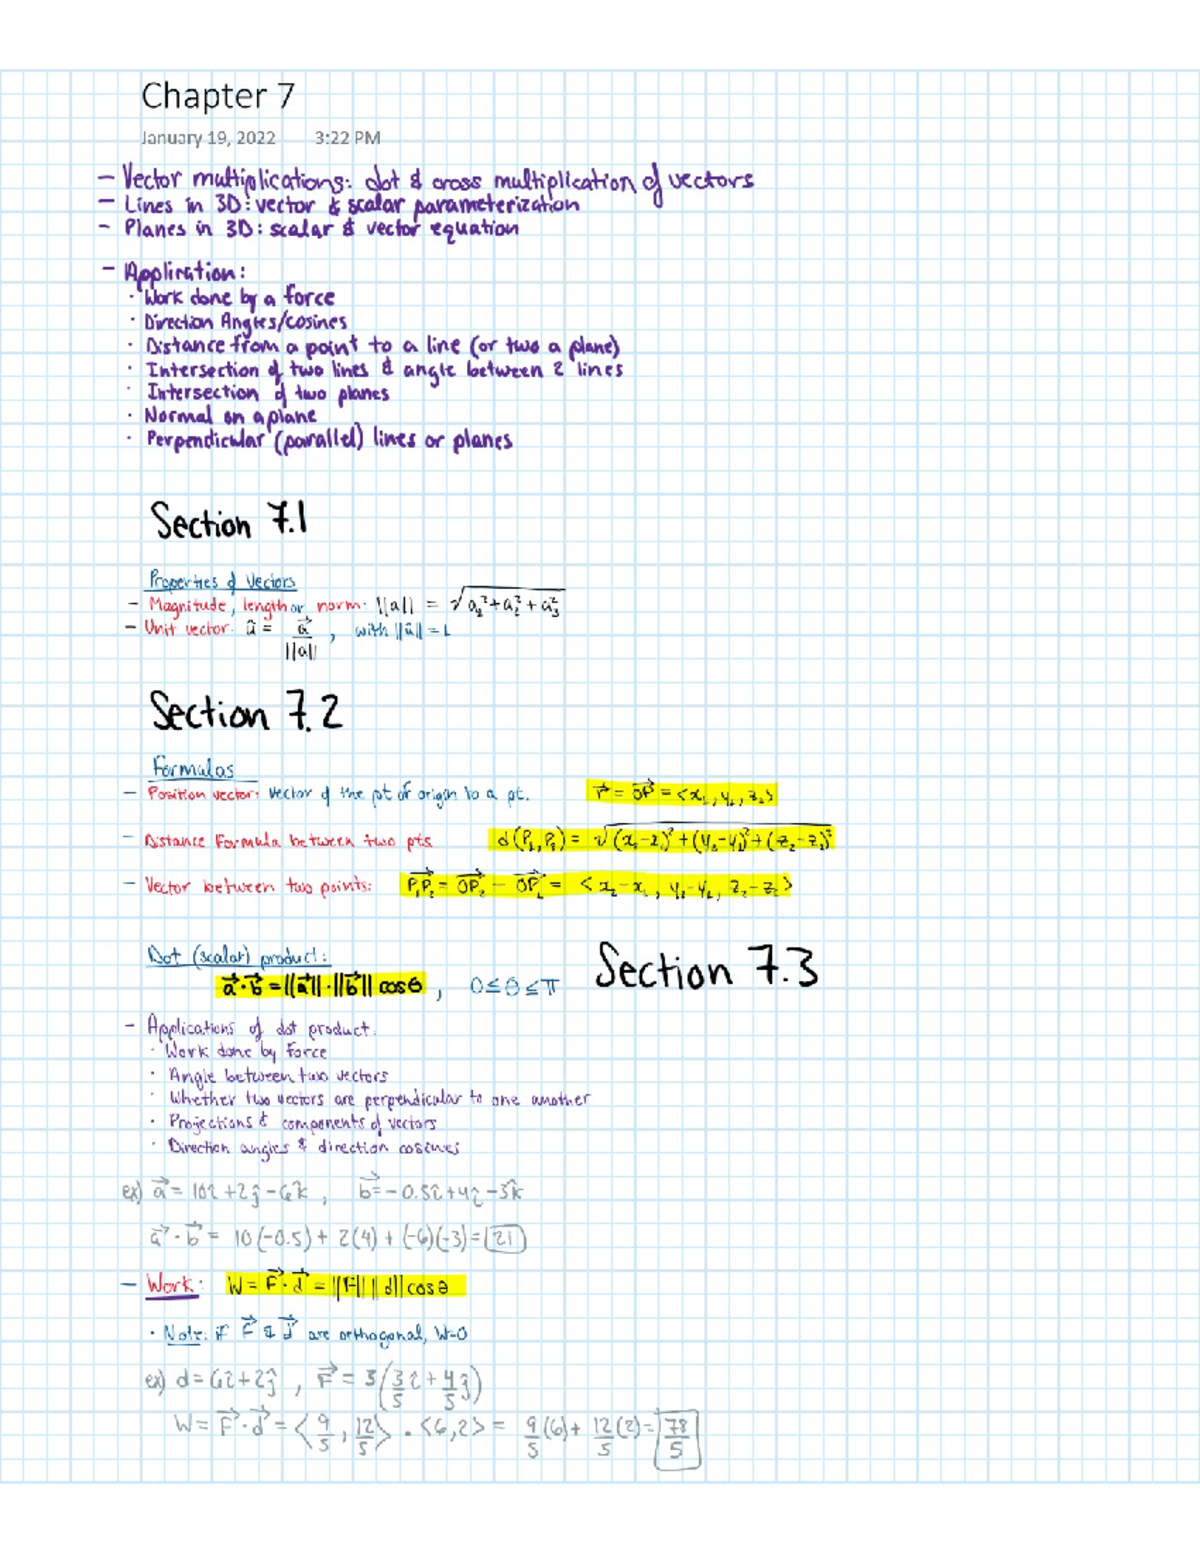 Chapter 7
January 19, 2022 3:22 PM
- Vector multiplications: dot & cross multiplication of vectors
- Lines in 3D: vector & scalar parameterization
- Planes in 3D: scalar & vector equation
- Application:
· Work done by a force
· Direction Angles/cosines
· Distance from a point to a line (or two a plane)
· Intersection of two lines & angle between 2 lines
· Intersection of two planes
· Normal on a plane
· Perpendicular (parallel) lines or planes
Section 7.1
Properties of Vectors
- Magnitude, length or norm: ||a|| = √a₁²+a₂²+a₃²
- Unit vector: â = a⃗/||a||, with ||â|| = 1
Section 7.2
Formulas
- Position vector: Vector of the pt of origin to a pt. r⃗ = OP⃗ = <x₁, y₁, z₁>
- Distance Formula between two pts. d(P₁,P₂) = √(x₂-x₁)²+(y₂-y₁)²+(z₂-z₁)²
- Vector between two points: P₁P₂⃗ = OP₂⃗ - OP₁⃗ = <x₂-x₁, y₂-y₁, z₂-z₁>
Dot (scalar) product: Section 7.3
a⃗·b⃗ = ||a⃗||·||b⃗|| cosθ, 0≤θ≤π
- Applications of dot product:
· Work done by force
· Angle between two vectors
· Whether two vectors are perpendicular to one another
· Projections & components of vectors
· Direction angles & direction cosines
ex) a⃗ = 10î+2ĵ-6k̂, b⃗ = -0.5î+4ĵ-3k̂
a⃗·b⃗ = 10(-0.5)+2(4)+(-6)(-3)=21
- Work: W = F⃗·d⃗ = ||F|| ||d|| cosθ
· Note: if F⃗ & d⃗ are orthogonal, W=0
ex) d = 6î+2ĵ, F⃗ = 3(3/5 î + 4/5 ĵ)
W = F⃗·d⃗ = <9/5, 12/5> · <6,2> = 9/5(6)+12/5(2)=78/5